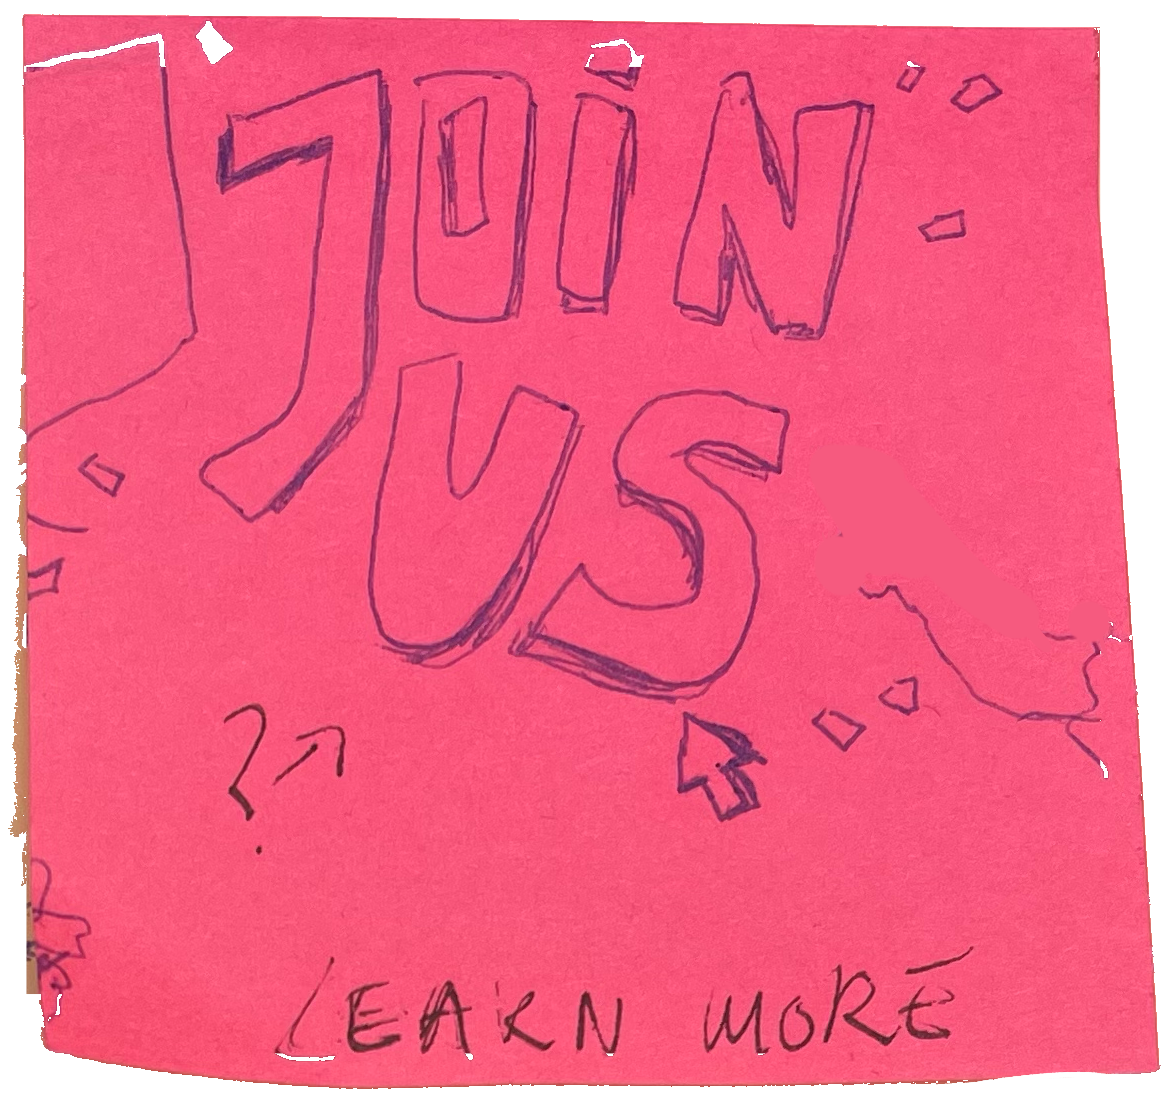 JOiN
US
?
LEARN MORE